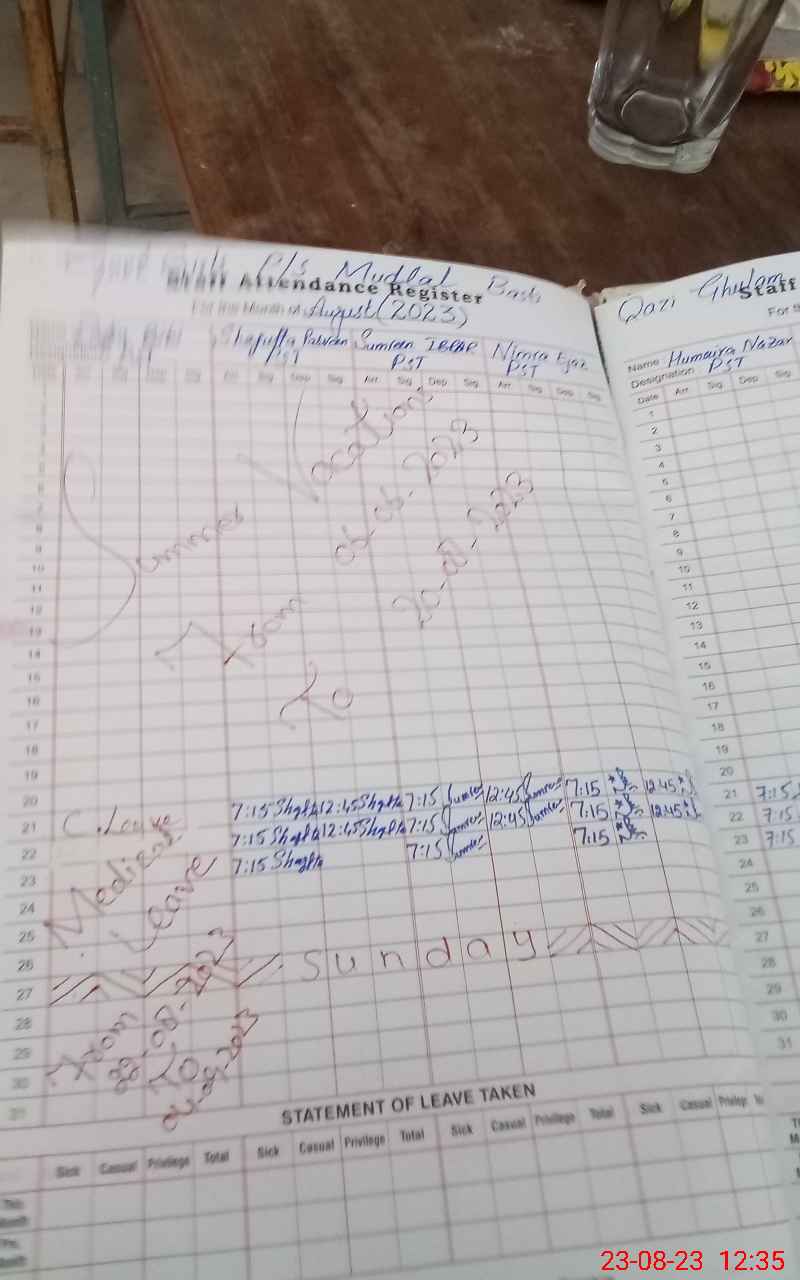 P/S Mudbal Bash
Staff Attendance Register
For the Month of August (2023)
Shagufta Parveen Sumreen IQBAL Nimra Ejaz
PST PST PST
Arr Sig Dep Sig Arr Sig Dep Sig
Summer Vacation
From 05-06-2023
To 20-08-2023
8
9
10
11
12
13
14
15
16
17
18
19
20
21 C.Leave 7:15 Shgfta 12:45 Shgfta 7:15 Sumreen 12:45 Sumreen 7:15 12:45
22 7:15 Shgfta 12:45 Shgfta 7:15 Sumreen 12:45 Sumreen 7:15 12:45
23 7:15 Shagfta 7:15 Sumreen 7:15
24 Medical
25 Leave
26
27 Sunday
28 From
29 22-08-2023
30 To
31
STATEMENT OF LEAVE TAKEN
Sick Casual Privilege Total Sick Casual Privilege Total Sick Casual Privilege Total Sick Casual Privilege
Qazi Ghulam
Staff
Name Humaira Nazar
Designation PST
Date Arr Sig Dep Sig
1
2
3
4
5
6
7
8
9
10
11
12
13
14
15
16
17
18
19
20
21 7:15
22 7:15
23 7:15
24
25
26
27
28
29
30
31
23-08-23 12:35